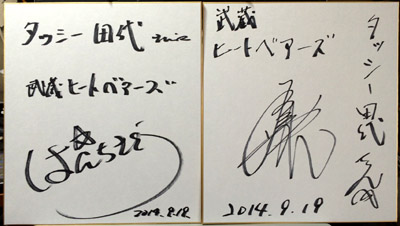 タッシー田代 さんに
武蔵ヒートベアーズ
2014.9.19
武蔵
ヒートベアーズ
タッシー田代さんに
2014.9.19